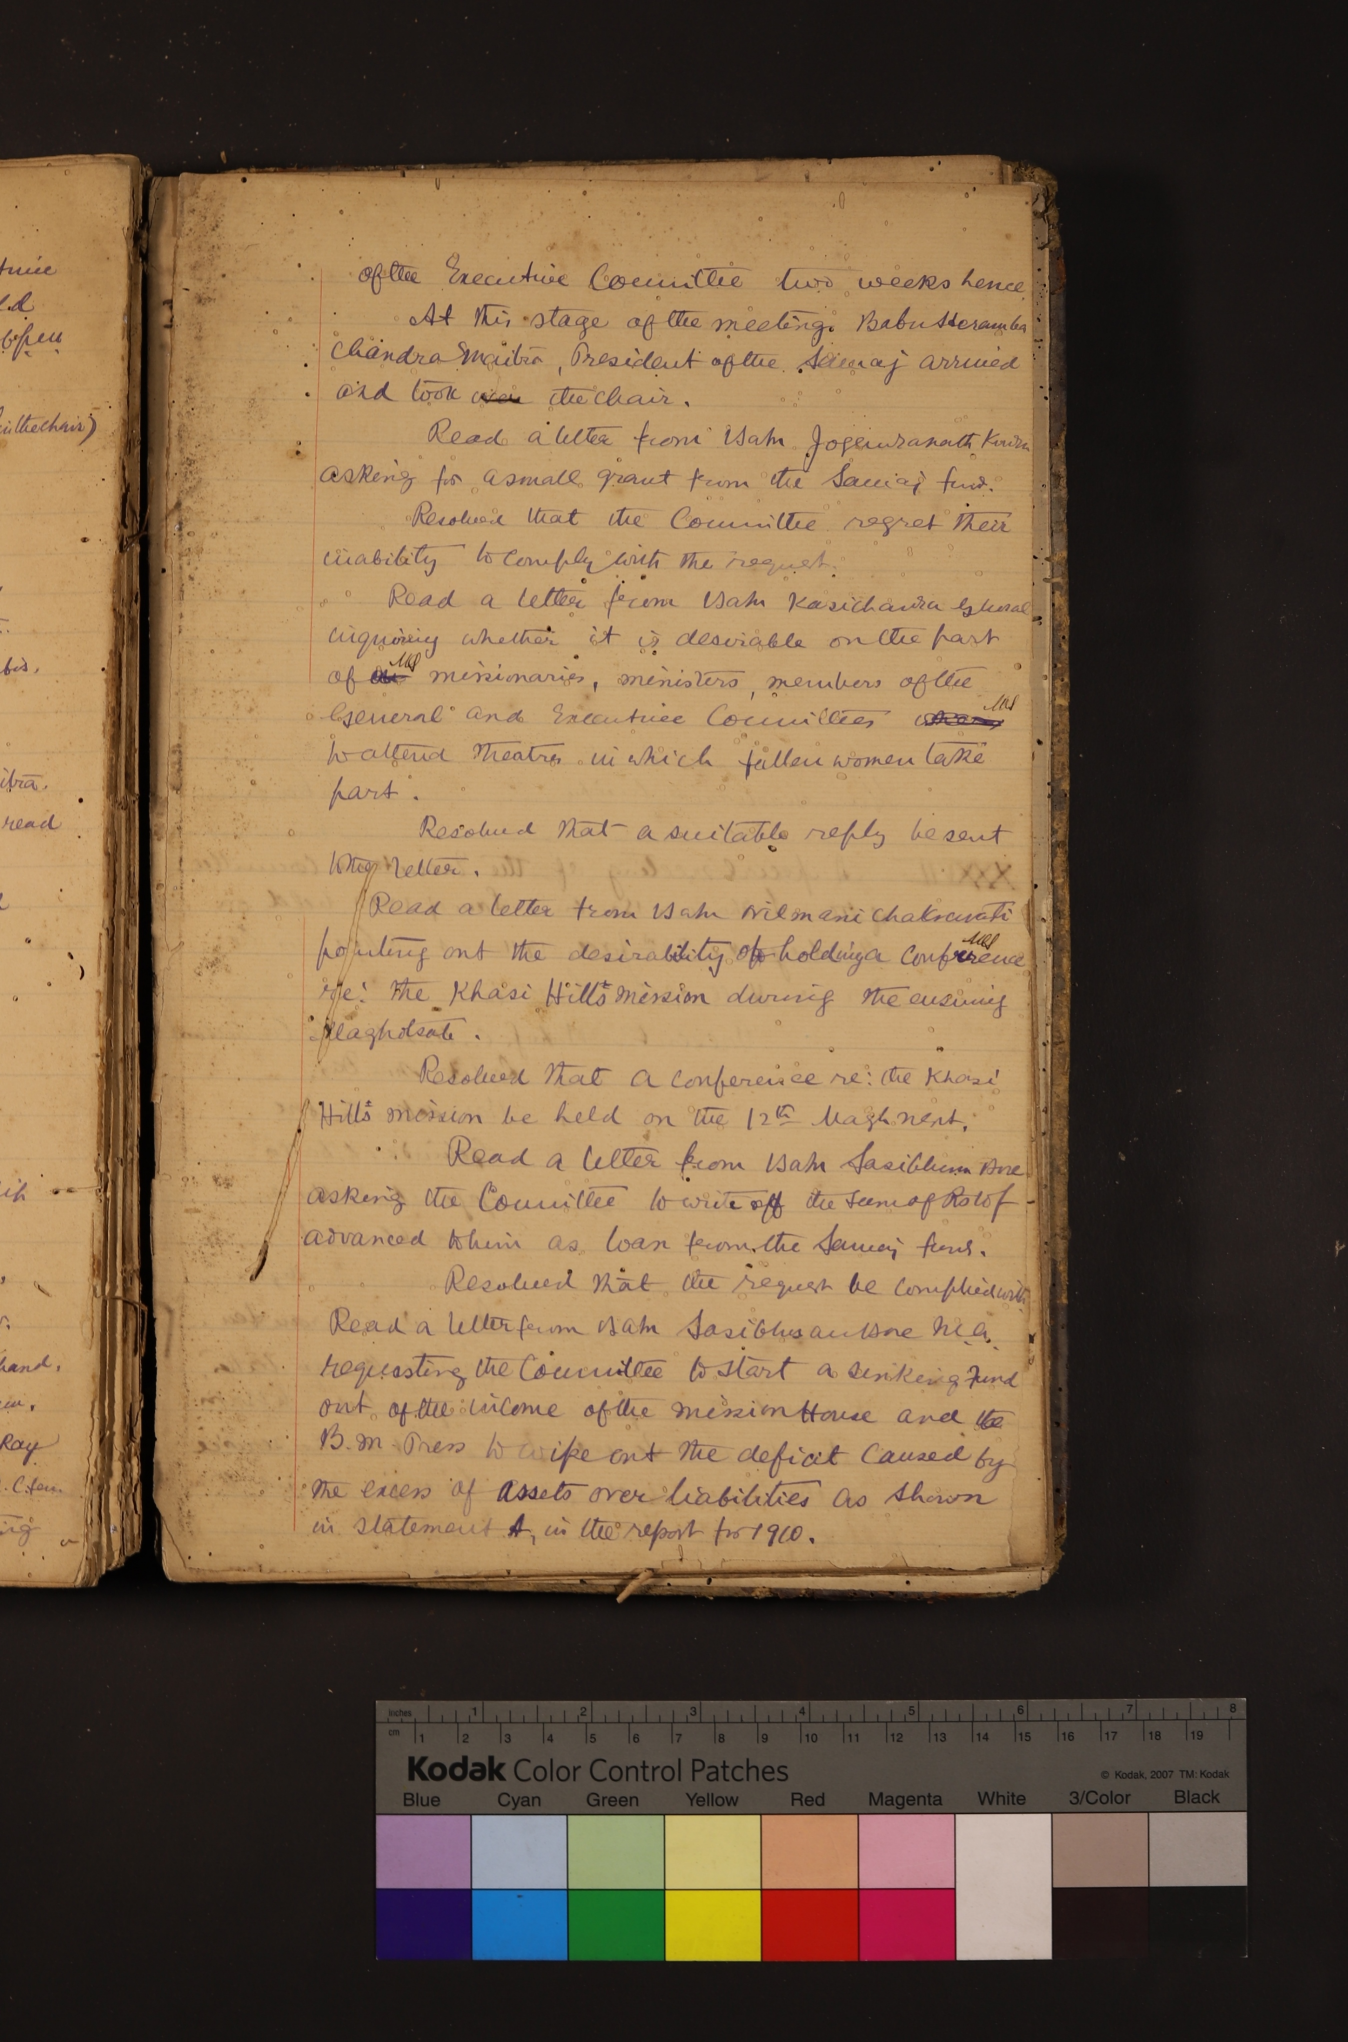 of the Executive Committee two weeks hence
At this stage of the meeting Babu Heramba
Chandra Maitra, President of the Samaj arrived
and took over the chair.
Read a letter from Babu Jogendranath
asking for a small grant from the Samaj fund.
Resolved that the Committee regret their
inability to comply with the request.
Read a letter from Babu Kasichandra Ghosal
inquiring whether it is desirable on the part
of missionaries, ministers, members of the
General and Executive Committees
to attend theatres in which fallen women take
part.
Resolved that a suitable reply be sent
to the letter.
Read a letter from Babu Nilmani Chakravati
pointing out the desirability of holding a conference
re: the Khasi Hills mission during the ensuing
Maghotsab.
Resolved that a conference re: the Khasi
Hills mission be held on the 12th Magh next.
Read a letter from Babu Sasibhusan Bose
asking the Committee to write off the sum of
advanced to him as loan from the Samaj fund.
Resolved that the request be complied with
Read a letter from Babu Sasibhusan Bose M.A.
requesting the Committee to start a sinking Fund
out of the income of the mission House and the
B. M. Press to wipe out the deficit caused by
the excess of assets over liabilities as shown
in statement A, in the report for 1910.
in the chair)
read
hand.
Ray
Inches 1 2 3 4 5 6 7 8
cm 1 2 3 4 5 6 7 8 9 10 11 12 13 14 15 16 17 18 19
Kodak Color Control Patches
© Kodak, 2007 TM: Kodak
Blue Cyan Green Yellow Red Magenta White 3/Color Black